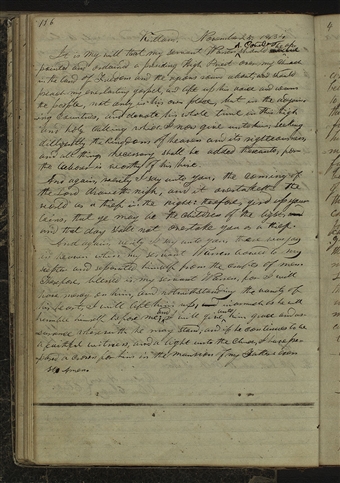 116
Kirtland November 25, 1834
It is my will that my servant Warren A. Cowdery should be ap
pointed and ordained a presiding High Priest over my church
in the land of Freedom and the regions round about and should
preach my everlasting gospel, and lift up his voice and warn
the people, not only in his own place, but in the adjoin
ing Counties, and devote his whole time in this high
and holy calling which I now give unto him, seeking
diligently the Kingdom of heaven and its righteousness,
and all things necessary shall be added thereunto, for
the laborer is worthy of his hire
And again, verily I say unto you, the coming of
the Lord draweth nigh, and it overtaketh the
world as a thief in the night: therefore, gird up your
loins, that ye may be the children of the light,
and that day shall not overtake you as a thief.
And again verily I say unto you, there was joy
in heaven when my servant Warren bowed to my
scepter and separated himself from the crafts of men.
therefore, blessed is my servant Warren, for I will
have mercy on him, and notwithstanding the vanity of
his heart, I will lift him up, inasmuch as he will
humble himself before me; and I will give unto him, grace and as
surance wherewith he may stand, and if he continues to be
a faithful witness, and a light unto the Church, I have prepa
red a crown for him in the mansions of my Father. Even
so Amen.